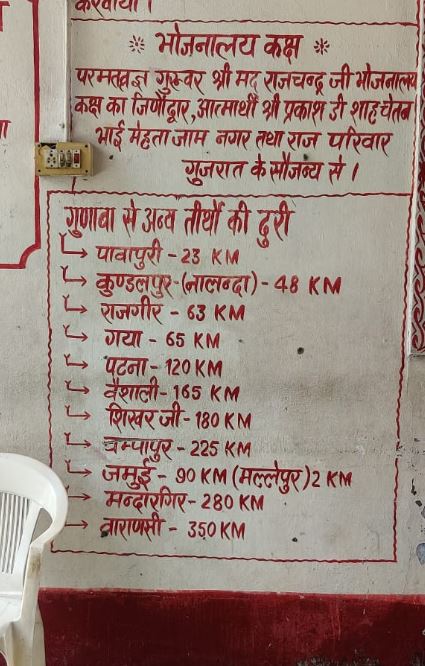 करवाया।
※ भोजनालय कक्ष ※
परमतत्वज्ञ गुरूवर श्री मद् राजचन्द्र जी भोजनालय
कक्ष का जिर्णोद्वार, आत्मार्थी श्री प्रकाश डी शाह चेतन
भाई मेहता जाम नगर तथा राज परिवार
गुजरात के सौजन्य से।
गुणावा से अन्य तीर्थो की दुरी
पावापुरी - 23 KM
कुण्डलपुर-(नालन्दा) - 48 KM
राजगीर - 63 KM
गया - 65 KM
पटना - 120 KM
वैशाली - 165 KM
शिखर जी - 180 KM
चम्पापुर - 225 KM
जमुई - 90 KM (मल्लेपुर) 2 KM
मन्दारगिर - 280 KM
वाराणसी - 350 KM